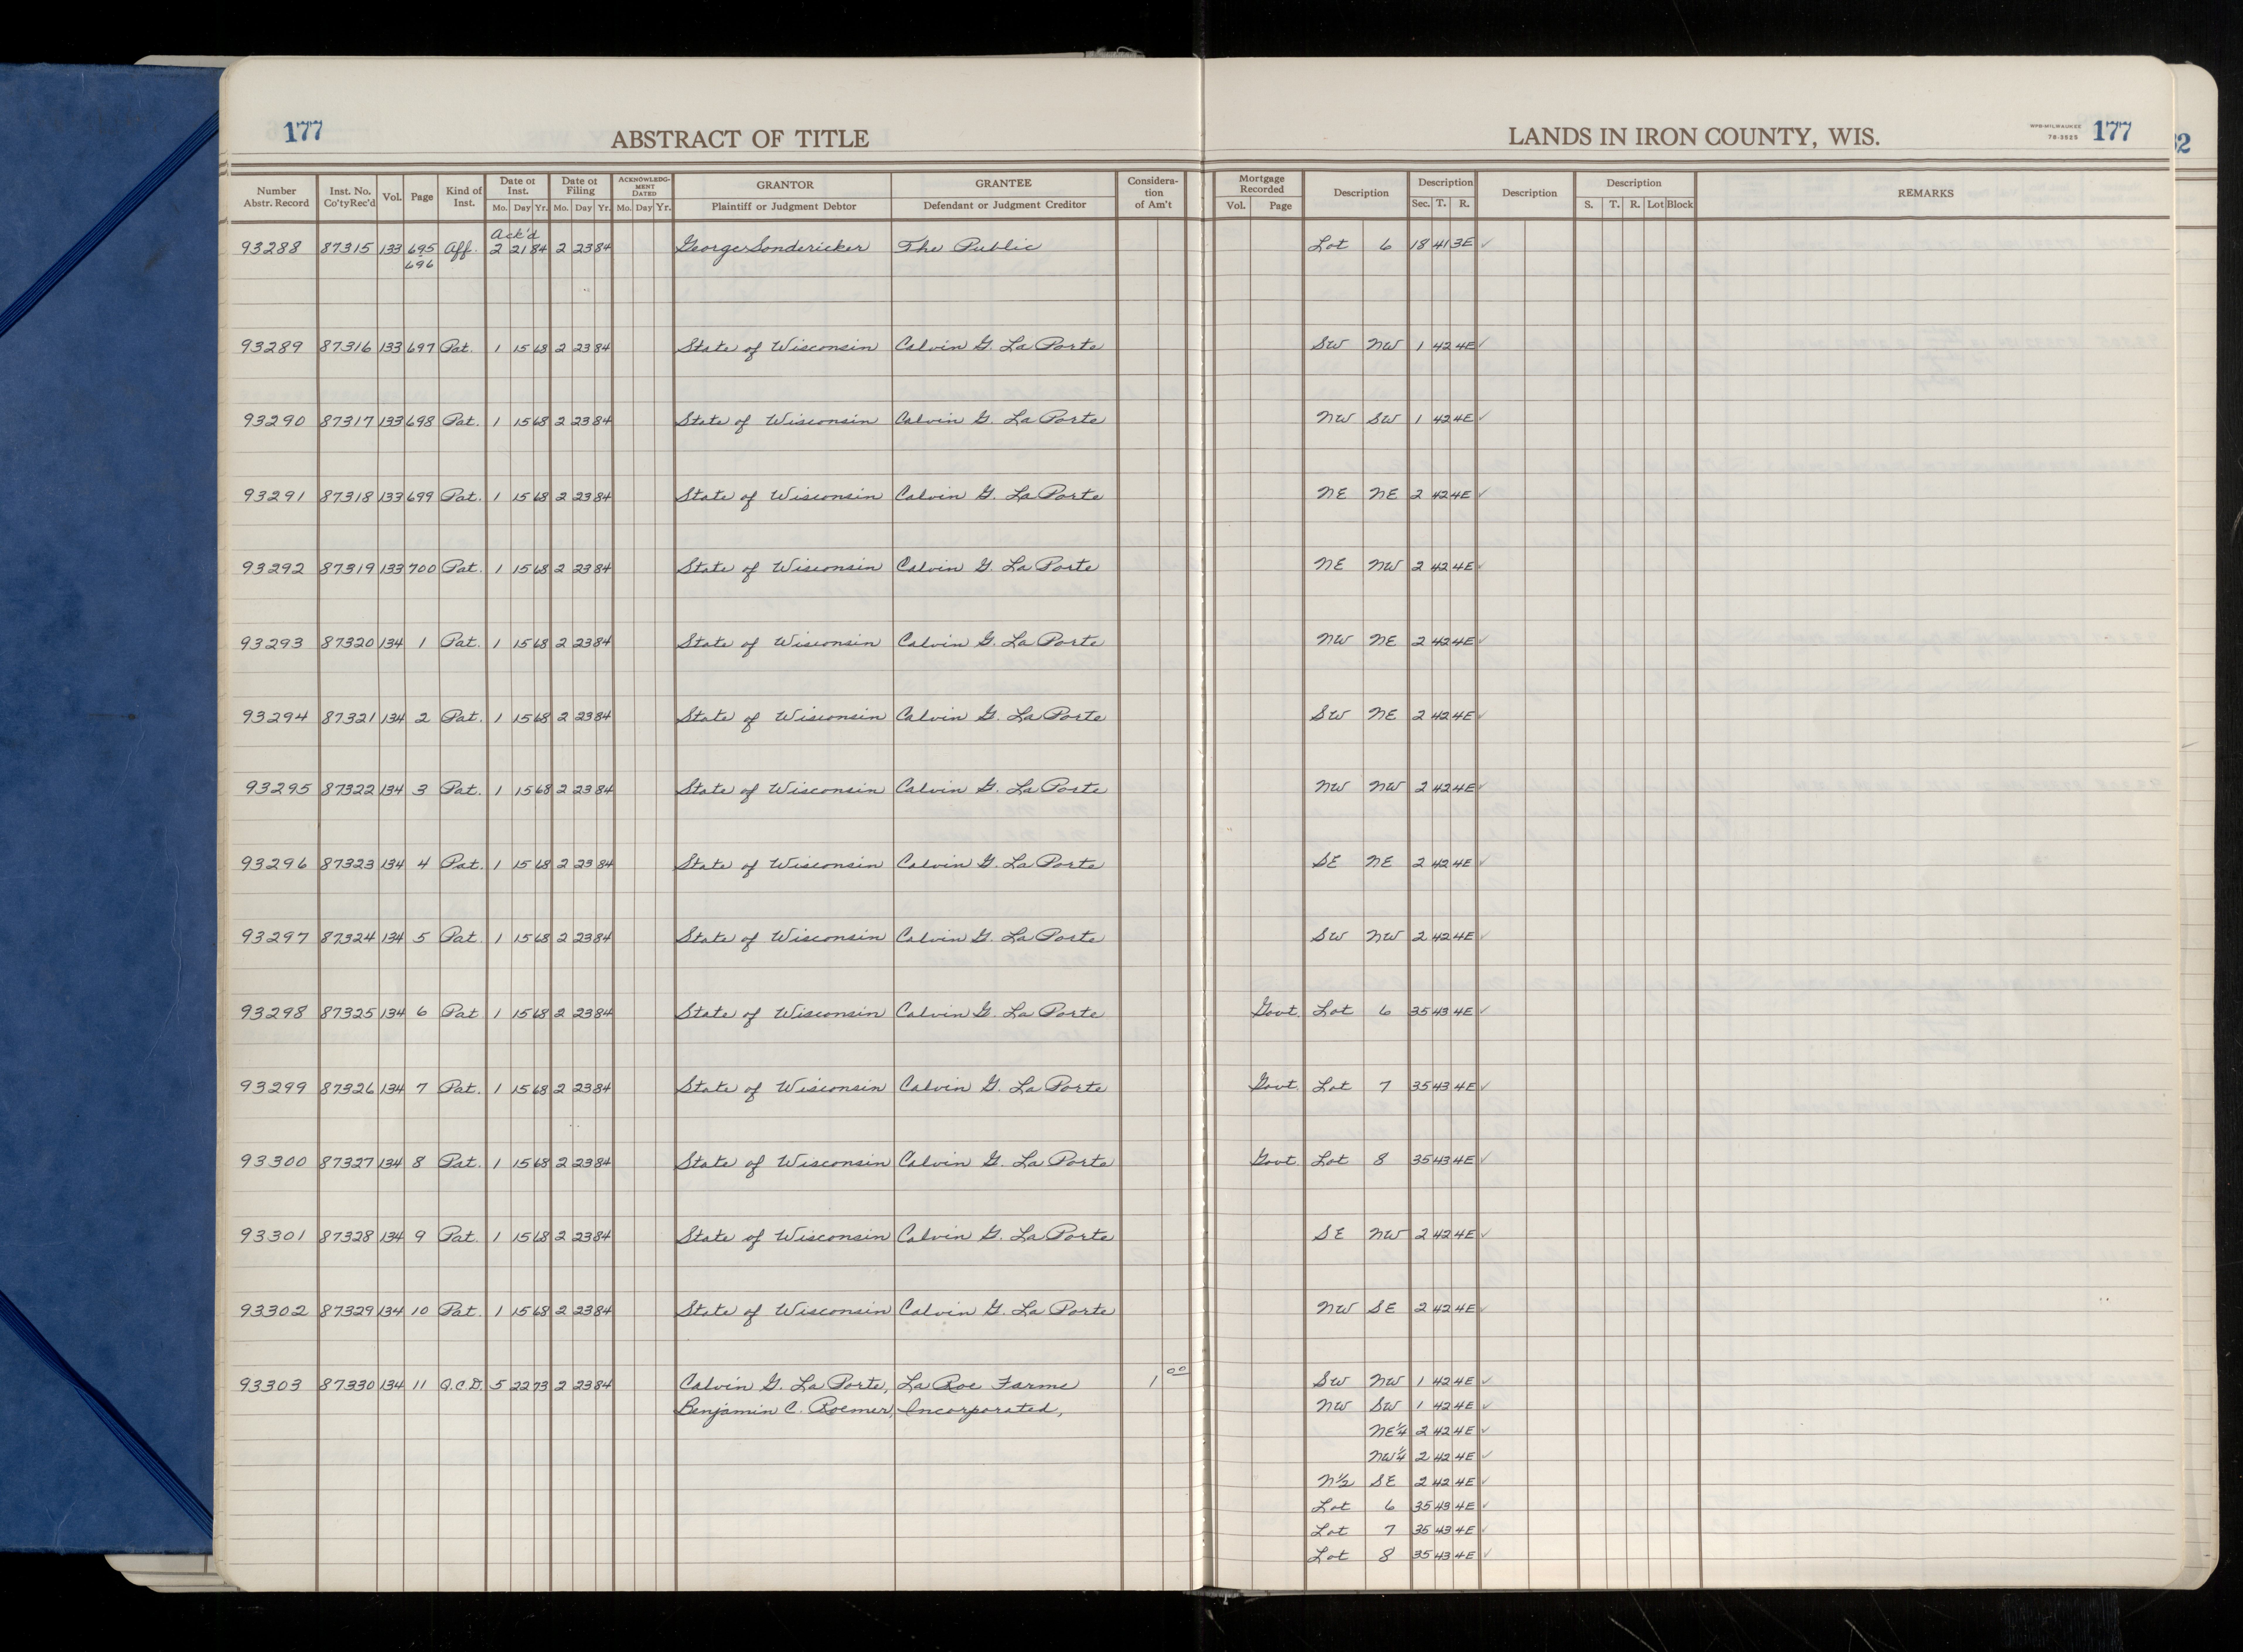 177 ABSTRACT OF TITLE LANDS IN IRON COUNTY, WIS. WPB-MILWAUKEE 78-3525 177
Number Abstr. Record Inst. No. Co'ty Rec'd Vol. Page Kind of Inst. Date of Inst. Mo. Day Yr. Date of Filing Mo. Day Yr. ACKNOWLEDG-MENT DATED Mo. Day Yr. GRANTOR Plaintiff or Judgment Debtor GRANTEE Defendant or Judgment Creditor Considera-tion of Am't Mortgage Recorded Vol. Page Description Description Sec. T. R. Description Description S. T. R. Lot Block REMARKS
Ack'd
93288 87315 133 695 Aff. 2 21 84 2 23 84 George Sondericker The Public Lot 6 18 41 3E ✓
696
93289 87316 133 697 Pat. 1 15 68 2 23 84 State of Wisconsin Calvin G. La Porte SW NW 1 42 4E ✓
93290 87317 133 698 Pat. 1 15 68 2 23 84 State of Wisconsin Calvin G. La Porte NW SW 1 42 4E ✓
93291 87318 133 699 Pat. 1 15 68 2 23 84 State of Wisconsin Calvin G. La Porte NE NE 2 42 4E ✓
93292 87319 133 700 Pat. 1 15 68 2 23 84 State of Wisconsin Calvin G. La Porte NE NW 2 42 4E ✓
93293 87320 134 1 Pat. 1 15 68 2 23 84 State of Wisconsin Calvin G. La Porte NW NE 2 42 4E ✓
93294 87321 134 2 Pat. 1 15 68 2 23 84 State of Wisconsin Calvin G. La Porte SW NE 2 42 4E ✓
93295 87322 134 3 Pat. 1 15 68 2 23 84 State of Wisconsin Calvin G. La Porte NW NW 2 42 4E ✓
93296 87323 134 4 Pat. 1 15 68 2 23 84 State of Wisconsin Calvin G. La Porte SE NE 2 42 4E ✓
93297 87324 134 5 Pat. 1 15 68 2 23 84 State of Wisconsin Calvin G. La Porte SW NW 2 42 4E ✓
93298 87325 134 6 Pat 1 15 68 2 23 84 State of Wisconsin Calvin G. La Porte Govt. Lot 6 35 43 4E ✓
93299 87326 134 7 Pat. 1 15 68 2 23 84 State of Wisconsin Calvin G. La Porte Govt. Lot 7 35 43 4E ✓
93300 87327 134 8 Pat. 1 15 68 2 23 84 State of Wisconsin Calvin G. La Porte Govt. Lot 8 35 43 4E ✓
93301 87328 134 9 Pat. 1 15 68 2 23 84 State of Wisconsin Calvin G. La Porte SE NW 2 42 4E ✓
93302 87329 134 10 Pat. 1 15 68 2 23 84 State of Wisconsin Calvin G. La Porte NW SE 2 42 4E ✓
93303 87330 134 11 Q.C.D. 5 22 73 2 23 84 Calvin G. La Porte, La Roe Farms 1 00 SW NW 1 42 4E ✓
Benjamin C. Roemer, Incorporated, NW SW 1 42 4E ✓
NE¼ 2 42 4E ✓
NW¼ 2 42 4E ✓
N½ SE 2 42 4E ✓
Lot 6 35 43 4E ✓
Lot 7 35 43 4E ✓
Lot 8 35 43 4E ✓